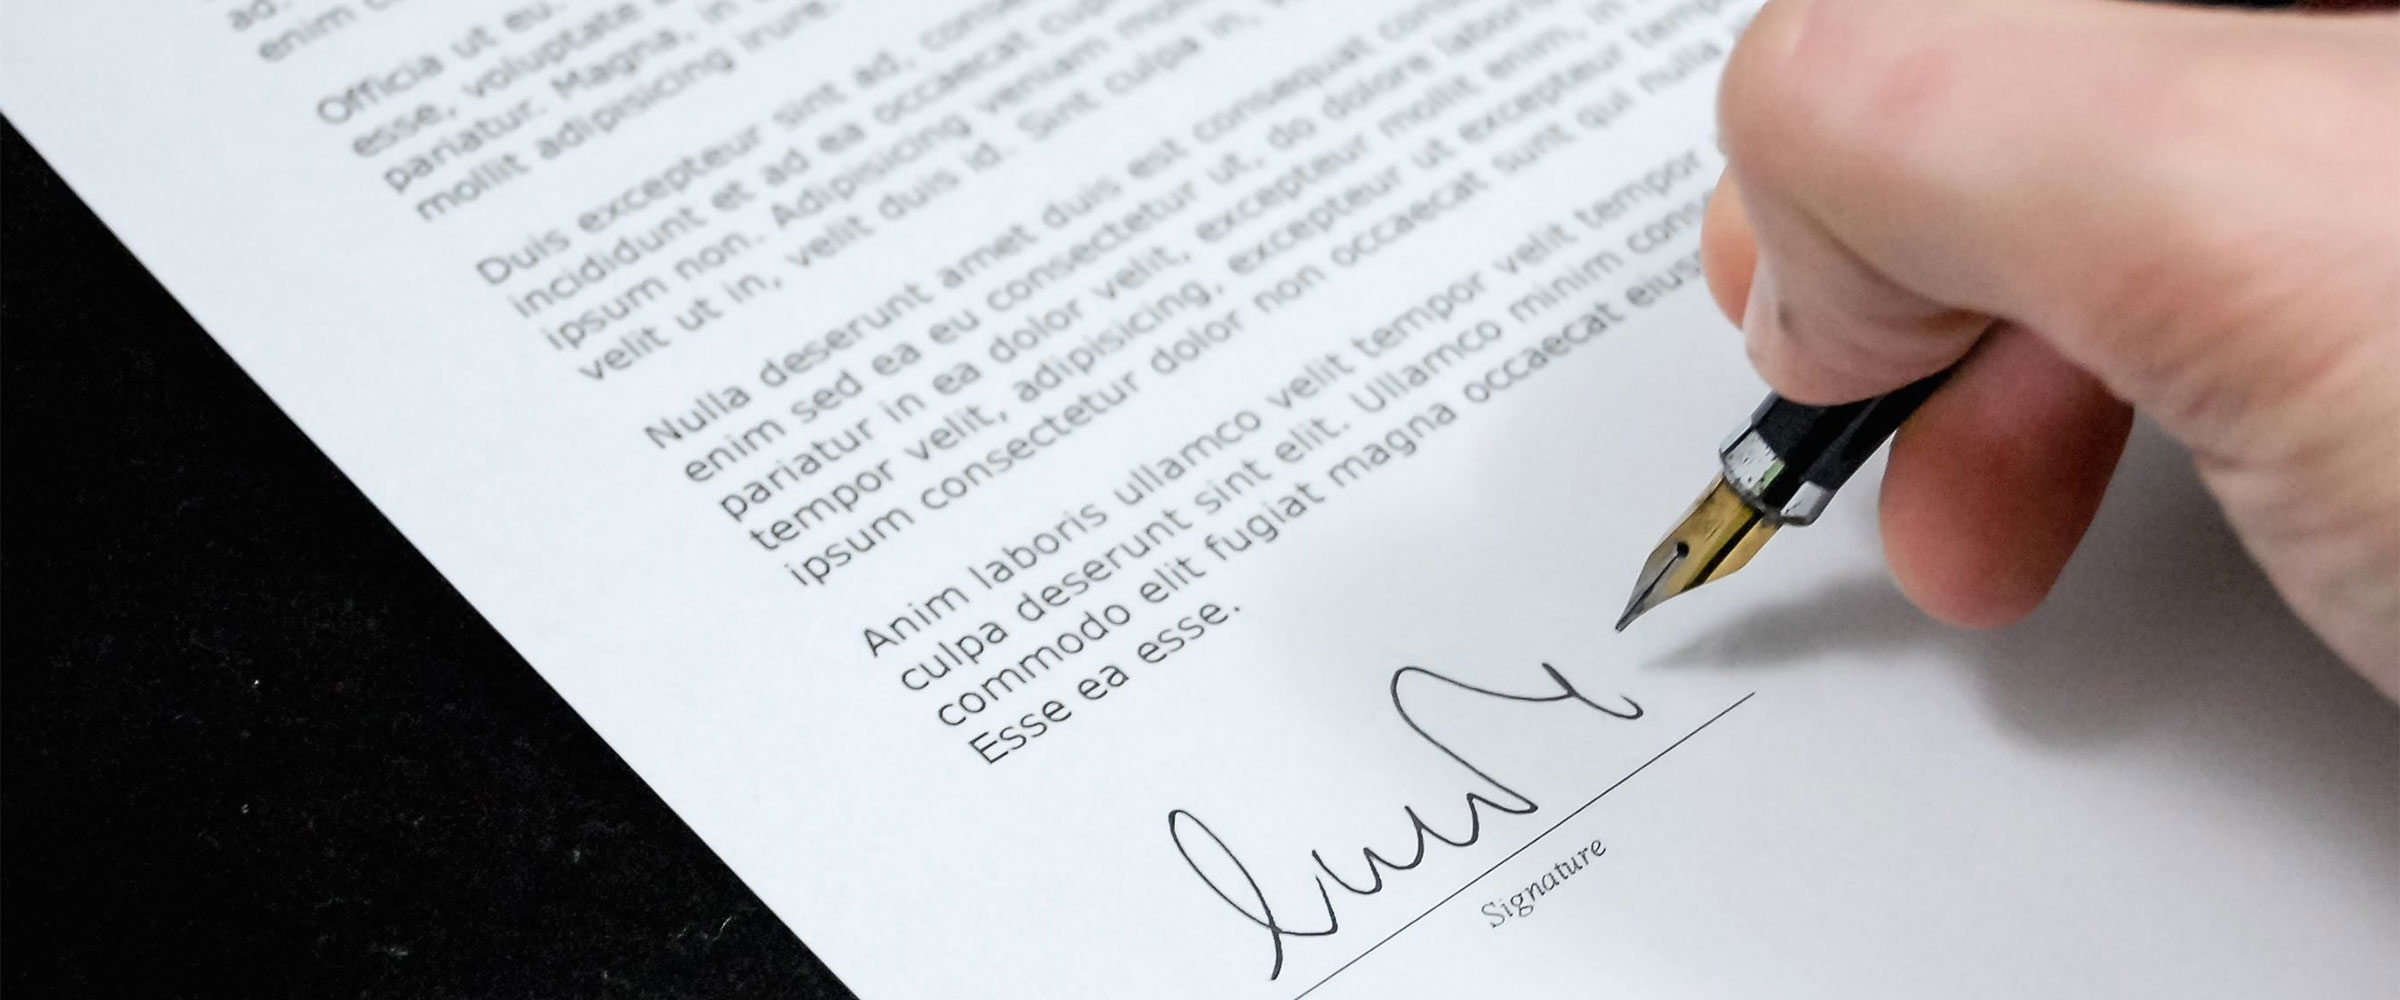 ad.
enim
Officia ut eu.
esse, voluptate
pariatur. Magna, in
mollit adipisicing irure.
Duis excepteur sint ad,
incididunt et ad ea occaecat
ipsum non. Adipisicing veniam
velit ut in, velit duis id. Sint culpa in,
Nulla deserunt amet duis est consequat
enim sed ea eu consectetur ut, do dolore
pariatur in ea dolor velit, excepteur mollit enim, in
tempor velit, adipisicing, excepteur ut excepteur
ipsum consectetur dolor non occaecat sunt qui nulla
Anim laboris ullamco velit tempor velit tempor
culpa deserunt sint elit. Ullamco minim
commodo elit fugiat magna occaecat
Esse ea esse.
Signature